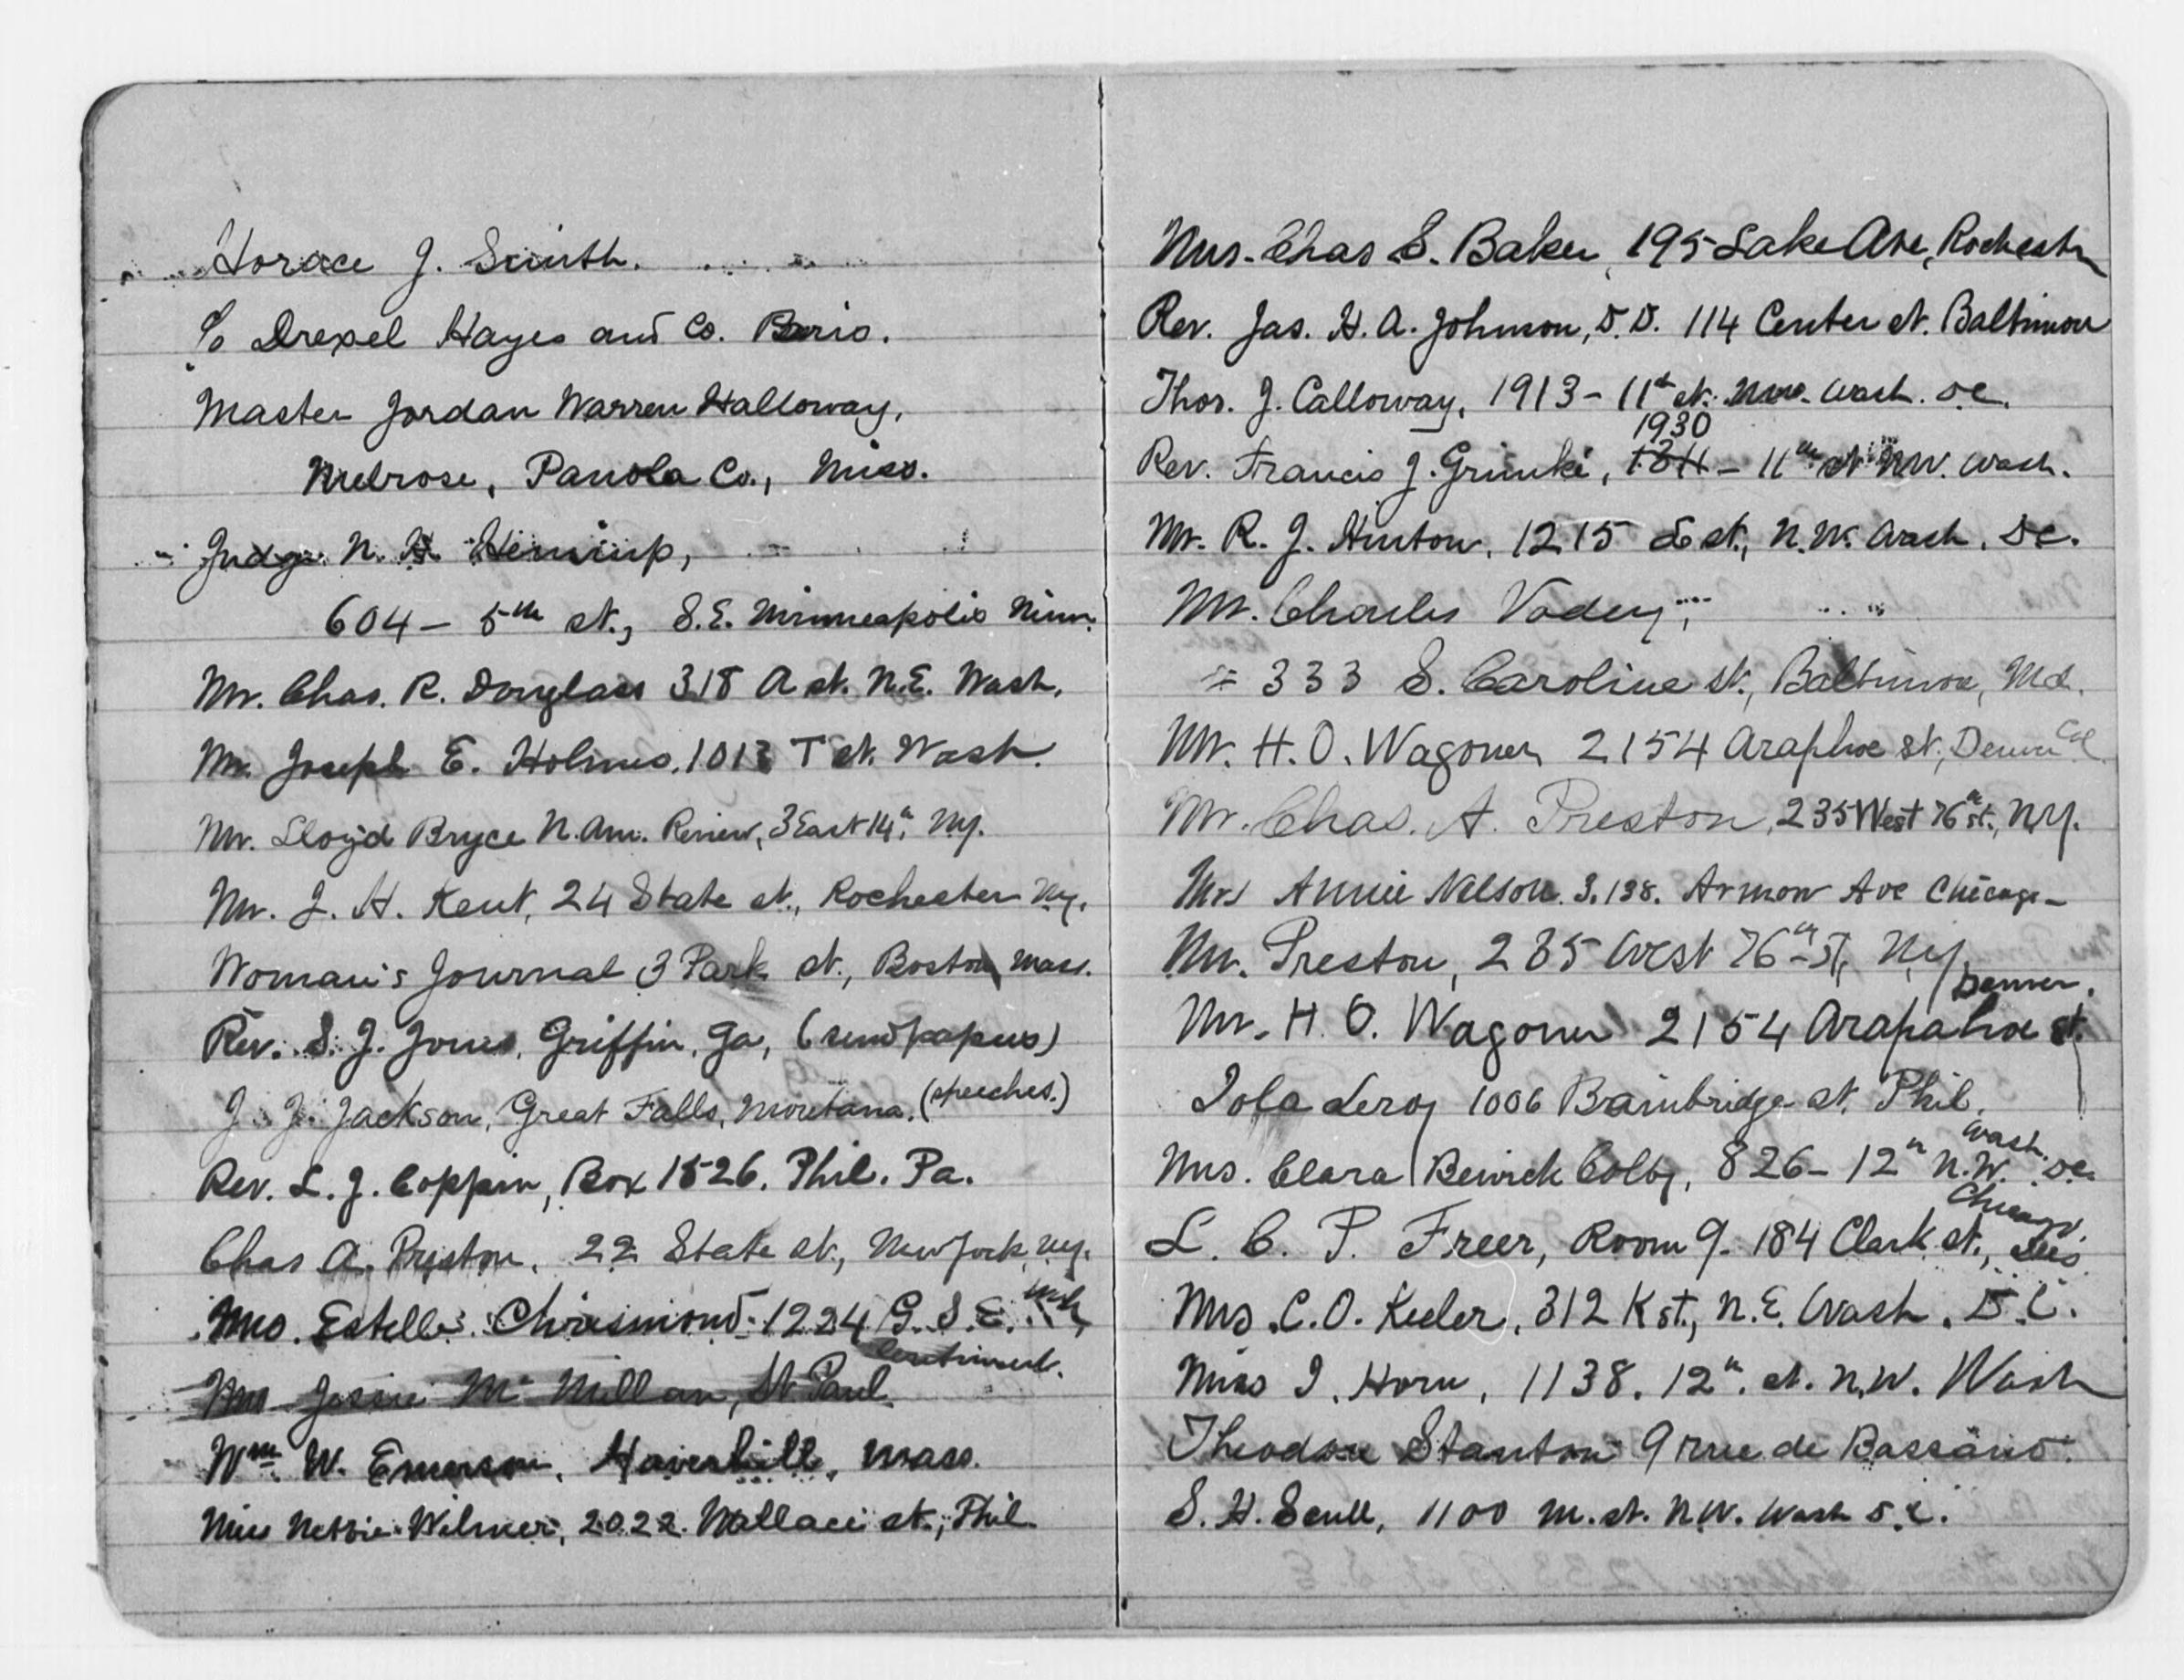 Horace J. Smith.
c/o Drexel Hayes and Co. Paris.
Master Jordan Warren Halloway,
Melrose, Panola Co., Miss.
Judge N. H. Hemiup,
604 - 5th st., S.E. Minneapolis Minn.
Mr. Chas. R. Douglass 318 A st. N.E. Wash.
Mr. Joseph E. Holmes, 1013 T st. Wash.
Mr. Lloyd Bryce N. Am. Review, 3 East 14th, N.Y.
Mr. J. H. Kent, 24 State st., Rochester N.Y.
Woman's Journal 3 Park st., Boston Mass.
Rev. S. J. Jones, Griffin, Ga, (send papers)
J. J. Jackson, Great Falls, Montana. (speeches.)
Rev. L. J. Coppin, Box 1526. Phil. Pa.
Chas A. Preston, 22 State st., New York N.Y.
Mrs. Estelle Chrismond 1224 G. S. E. Wash
Continent.
Jessie McMillan, St Paul.
Wm. W. Emerson, Haverhill, Mass.
Miss Nettie Wilmer, 2022 Wallace st., Phil.
Mrs. Chas S. Baker, 195 Lake Ave, Rochester
Rev. Jas. H. A. Johnson, D.D. 114 Center st. Baltimore
Thos. J. Calloway, 1913 - 11th st. N.W. Wash. D.C.
1930
Rev. Francis J. Grimké, 1811 - 11th st N.W. Wash.
Mr. R. J. Hinton, 1215 E st., N.W. Wash. D.C.
Mr. Charles Vodery,
333 S. Caroline st., Baltimore, Md.
Mr. H. O. Wagoner 2154 Araphoe st., Denver Col
Mr. Chas. A. Preston, 235 West 76th st., N.Y.
Mrs Annie Nelson 3.138. Armour Ave Chicago-
Mr. Preston, 235 West 76th St, N.Y.
Denver.
Mr. H. O. Wagoner 2154 Arapahoe st.
Iola Leroy 1006 Bainbridge st. Phil.
Mrs. Clara Bewick Colby, 826 - 12th N.W. Wash. D.C.
L. C. P. Freer, Room 9. 184 Clark st., Chicago Ills
Mrs. C. O. Keeler, 312 K st., N.E. Wash. D.C.
Miss I. Horn, 1138. 12th. st. N.W. Wash
Theodore Stanton 9 rue de Bassano.
S. H. Scull, 1100 M. st. N.W. Wash D.C.